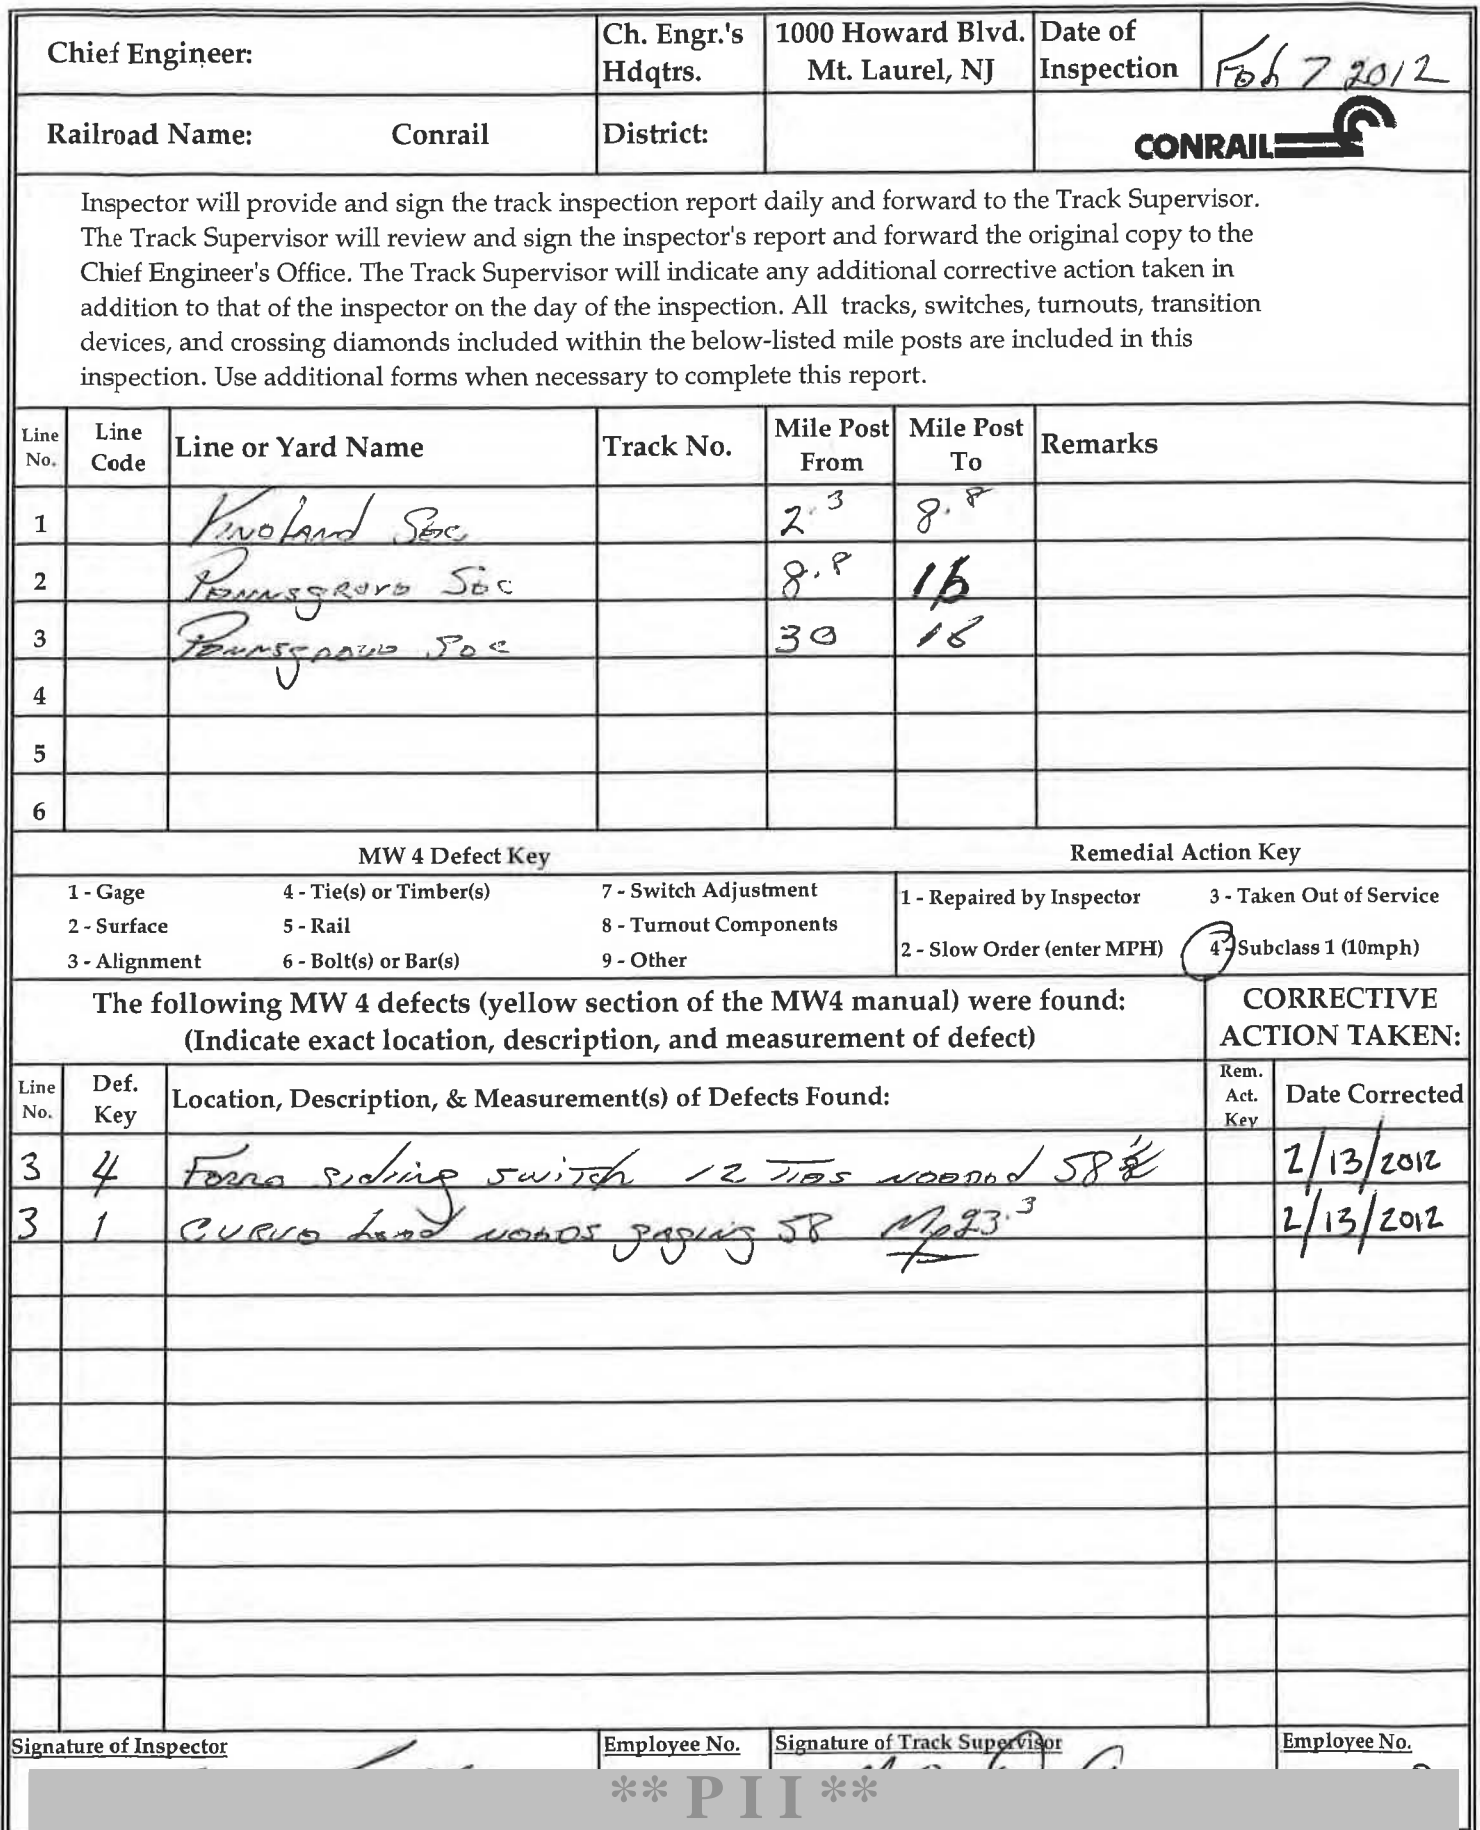 Chief Engineer:
Ch. Engr.'s Hdqtrs.
1000 Howard Blvd. Mt. Laurel, NJ
Date of Inspection
Feb 7 2012
Railroad Name: Conrail
District:
CONRAIL
Inspector will provide and sign the track inspection report daily and forward to the Track Supervisor.
The Track Supervisor will review and sign the inspector's report and forward the original copy to the
Chief Engineer's Office. The Track Supervisor will indicate any additional corrective action taken in
addition to that of the inspector on the day of the inspection. All tracks, switches, turnouts, transition
devices, and crossing diamonds included within the below-listed mile posts are included in this
inspection. Use additional forms when necessary to complete this report.
Line No. Line Code Line or Yard Name Track No. Mile Post From Mile Post To Remarks
1 Vineland Sec 2.3 8.8
2 Pennsgrove Sec 8.8 16
3 Pennsgrove Sec 30 16
4
5
6
MW 4 Defect Key Remedial Action Key
1 - Gage 4 - Tie(s) or Timber(s) 7 - Switch Adjustment 1 - Repaired by Inspector 3 - Taken Out of Service
2 - Surface 5 - Rail 8 - Turnout Components
2 - Slow Order (enter MPH) 4 - Subclass 1 (10mph)
3 - Alignment 6 - Bolt(s) or Bar(s) 9 - Other
The following MW 4 defects (yellow section of the MW4 manual) were found:
(Indicate exact location, description, and measurement of defect)
CORRECTIVE
ACTION TAKEN:
Line No. Def. Key Location, Description, & Measurement(s) of Defects Found: Rem. Act. Key Date Corrected
3 4 Ferro siding switch 12 Ties needed 58 2/13/2012
3 1 Curve Lead needs gaging 58 Mp 23.3 2/13/2012
Signature of Inspector Employee No. Signature of Track Supervisor Employee No.
** P I I **